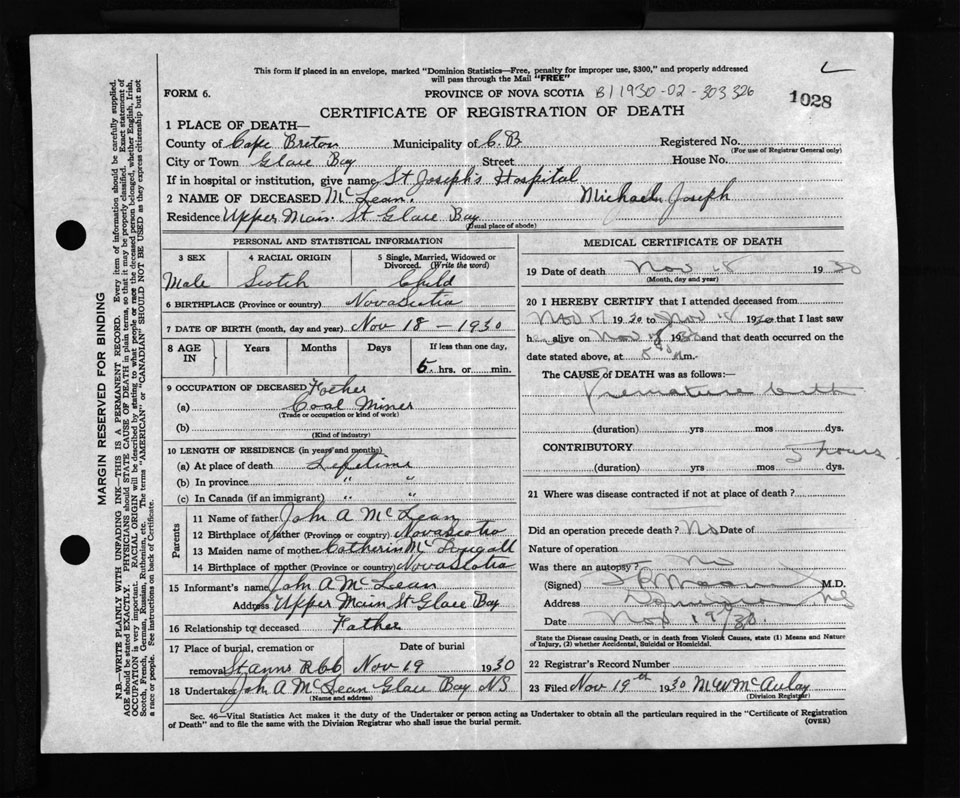 This form if placed in an envelope, marked "Dominion Statistics—Free, penalty for improper use, $300," and properly addressed
will pass through the Mail "FREE"
FORM 6. PROVINCE OF NOVA SCOTIA B11930-02-303326
1028
CERTIFICATE OF REGISTRATION OF DEATH
1 PLACE OF DEATH—
County of Cape Breton Municipality of C.B. Registered No.
(For use of Registrar General only)
City or Town Glace Bay Street House No.
If in hospital or institution, give name St Joseph's Hospital
2 NAME OF DECEASED McLean. Michael Joseph
Residence Upper Main. St Glace Bay
(Usual place of abode)
PERSONAL AND STATISTICAL INFORMATION
3 SEX 4 RACIAL ORIGIN 5 Single, Married, Widowed or
Divorced. (Write the word)
Male Scotch Child
6 BIRTHPLACE (Province or country) Nova Scotia
7 DATE OF BIRTH (month, day and year) Nov 18-1930
8 AGE IN Years Months Days If less than one day,
5 hrs. or min.
9 OCCUPATION OF DECEASED Father
(a) Coal Miner
(Trade or occupation or kind of work)
(b)
(Kind of industry)
10 LENGTH OF RESIDENCE (in years and months)
(a) At place of death Lifetime
(b) In province " "
(c) In Canada (if an immigrant) " "
Parents
11 Name of father John A McLean
12 Birthplace of father (Province or country) Nova Scotia
13 Maiden name of mother Catherin McDougall
14 Birthplace of mother (Province or country) Nova Scotia
15 Informant's name John A McLean
Address Upper Main St Glace Bay
16 Relationship to deceased Father
17 Place of burial, cremation or Date of burial
removal St anns Nov 19 1930
18 Undertaker John A McLean Glace Bay NS
(Name and address)
MEDICAL CERTIFICATE OF DEATH
19 Date of death Nov 18 1930
(Month, day and year)
20 I HEREBY CERTIFY that I attended deceased from
Nov 17 1930 to Nov 18 1930 that I last saw
h alive on Nov 1930 and that death occurred on the
date stated above, at m.
The CAUSE of DEATH was as follows:—
Premature birth
(duration) yrs mos dys.
CONTRIBUTORY 5 hours.
(duration) yrs mos dys.
21 Where was disease contracted if not at place of death?
Did an operation precede death? No Date of
Nature of operation
Was there an autopsy? No
(Signed) M.D.
Address NS
Date Nov 19/30.
State the Disease causing Death, or in death from Violent Causes, state (1) Means and Nature
of Injury, (2) whether Accidental, Suicidal or Homicidal.
22 Registrar's Record Number
23 Filed Nov 19th 1930 M W McAulay
(Division Registrar)
Sec. 46—Vital Statistics Act makes it the duty of the Undertaker or person acting as Undertaker to obtain all the particulars required in the "Certificate of Registration
of Death" and to file the same with the Division Registrar who shall issue the burial permit. (OVER)
MARGIN RESERVED FOR BINDING
N.B.—WRITE PLAINLY WITH UNFADING INK—THIS IS A PERMANENT RECORD. Every item of information should be carefully supplied.
AGE should be stated EXACTLY. PHYSICIANS should STATE CAUSE OF DEATH in plain terms, so that it may be properly classified. Exact statement of
OCCUPATION is very important. RACIAL ORIGIN will be described by stating to what people or race the deceased person belonged, whether English, Irish,
Scotch, French, German, Russian, Ruthenian, etc. The terms "AMERICAN" or "CANADIAN" SHOULD NOT BE USED as they express citizenship but not
a race or people. See instructions on back of Certificate.